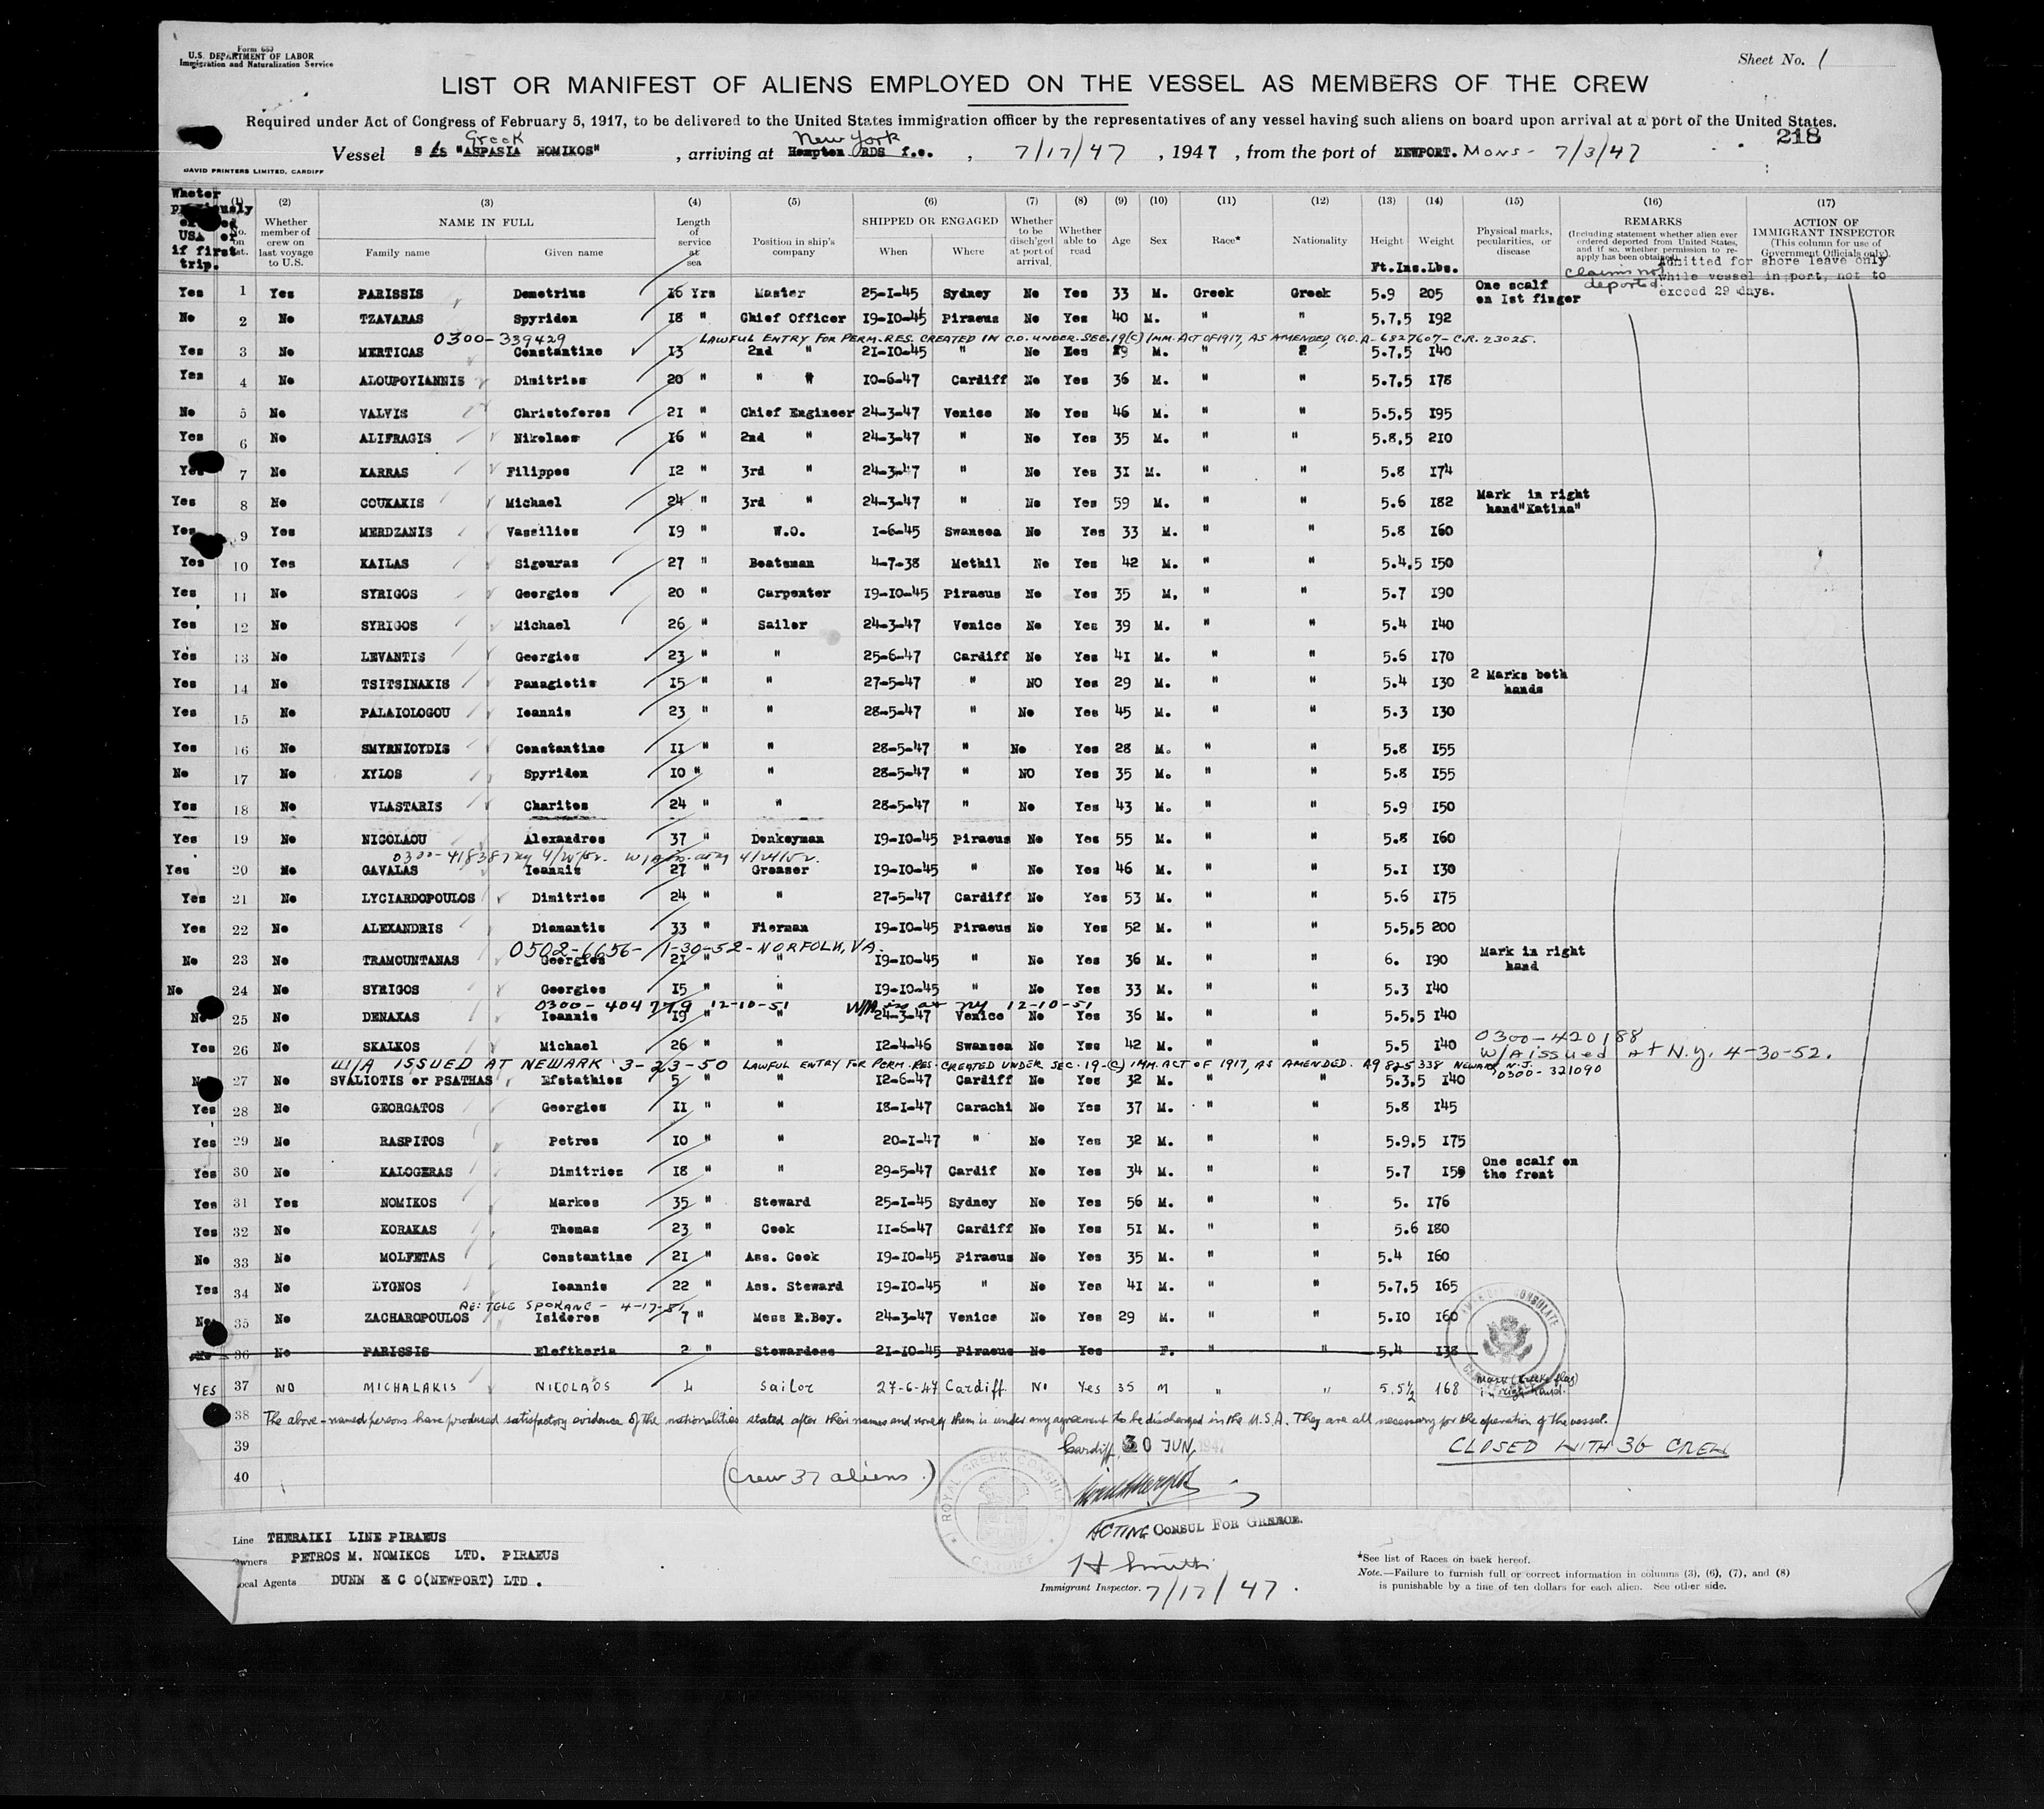 Form 689
U.S. DEPARTMENT OF LABOR
Immigration and Naturalization Service
Sheet No. 1
LIST OR MANIFEST OF ALIENS EMPLOYED ON THE VESSEL AS MEMBERS OF THE CREW
Required under Act of Congress of February 5, 1917, to be delivered to the United States immigration officer by the representatives of any vessel having such aliens on board upon arrival at a port of the United States.
218
Greek New York
Vessel S/S "ASPASIA NOMIKOS", arriving at Hampton RDS f.o., 7/17/47, 1947, from the port of NEWPORT. MONS - 7/3/47
DAVID PRINTERS LIMITED, CARDIFF
Wheter previously USA or if first trip.
(1) No. on list.
(2) Whether member of crew on last voyage to U.S.
(3) NAME IN FULL Family name Given name
(4) Length of service at sea
(5) Position in ship's company
(6) SHIPPED OR ENGAGED When Where
(7) Whether to be disch'ged at port of arrival,
(8) Whether able to read
(9) Age
(10) Sex
(11) Race*
(12) Nationality
(13) Height Ft.Ins.
(14) Weight Lbs.
(15) Physical marks, pecularities, or disease
(16) REMARKS (Including statement whether alien ever ordered deported from United States, and if so, whether permission to re-apply has been obtained)
(17) ACTION OF IMMIGRANT INSPECTOR (This column for use of Government Officials only).
claims not deported.
Admitted for shore leave only while vessel in port, not to exceed 29 days.
Yes 1 Yes PARISSIS Demetrius 16 Yrs Master 25-I-45 Sydney No Yes 33 M. Greek Greek 5.9 205 One scalf on Ist finger
No 2 No TZAVARAS Spyriden 18 " Chief Officer I9-I0-45 Piraeus No Yes 40 M. " " 5.7.5 I92
0300-339429 LAWFUL ENTRY FOR PERM. RES. CREATED IN C.O. UNDER SEC. 19(C) IMM. ACT OF 1917, AS AMENDED, C.O. A-6827607-C.R. 23025.
Yes 3 No MERTICAS Constantine I3 2nd " 2I-I0-45 " No Yes 29 M. " " 5.7.5 I40
Yes 4 No ALOUPOYIANNIS Dimitries 20 " " " I0-6-47 Cardiff No Yes 36 M. " " 5.7.5 I78
No 5 No VALVIS Christoferes 2I " Chief Engineer 24-3-47 Venice No Yes 46 M. " " 5.5.5 I95
Yes 6 No ALIFRAGIS Nikolaes I6 " 2nd " 24-3-47 " No Yes 35 M. " " 5.8.5 2I0
Yes 7 No KARRAS Filippes I2 " 3rd " 24-3-47 " No Yes 3I M. " " 5.8 I74
Yes 8 No COUKAKIS Michael 24 " 3rd " 24-3-47 " No Yes 59 M. " " 5.6 I82 Mark in right hand"Katina"
Yes 9 Yes MERDZANIS Vassilies I9 " W.O. I-6-45 Swansea No Yes 33 M. " " 5.8 I60
Yes 10 Yes KAILAS Sigouras 27 " Boatsman 4-7-38 Methil No Yes 42 M. " " 5.4.5 I50
Yes 11 No SYRIGOS Georgies 20 " Carpenter I9-I0-45 Piraeus No Yes 35 M. " " 5.7 I90
Yes 12 No SYRIGOS Michael 26 " Sailor 24-3-47 Venice No Yes 39 M. " " 5.4 I40
Yes 13 No LEVANTIS Georgies 23 " " 25-6-47 Cardiff No Yes 4I M. " " 5.6 I70
Yes 14 No TSITSINAKIS Panagiotis I5 " " 27-5-47 " NO Yes 29 M. " " 5.4 I30 2 Marks both hands
Yes 15 No PALAIOLOGOU Ioannis 23 " " 28-5-47 " No Yes 45 M. " " 5.3 I30
Yes 16 No SMYRNIOYDIS Constantine II " " 28-5-47 " No Yes 28 M. " " 5.8 I55
No 17 No XYLOS Spyriden I0 " " 28-5-47 " NO Yes 35 M. " " 5.8 I55
Yes 18 No VLASTARIS Charitos 24 " " 28-5-47 " No Yes 43 M. " " 5.9 I50
Yes 19 No NICOLAOU Alexandres 37 " Donkeyman I9-I0-45 Piraeus No Yes 55 M. " " 5.8 I60
Yes 20 No GAVALAS Ioannis 27 " Greaser I9-I0-45 " No Yes 46 M. " " 5.I I30
Yes 21 No LYCIARDOPOULOS Dimitries 24 " " 27-5-47 Cardiff No Yes 53 M. " " 5.6 I75
Yes 22 No ALEXANDRIS Diamantis 33 " Fierman I9-I0-45 Piraeus No Yes 52 M. " " 5.5.5 200
0502-6656- 1-30-52-NORFOLK, VA.
No 23 No TRAMOUNTANAS Georgies 2I " " I9-I0-45 " No Yes 36 M. " " 6. I90 Mark in right hand
No 24 No SYRIGOS Georgies I5 " " I9-I0-45 " No Yes 33 M. " " 5.3 I40
0300-404779 12-10-51 W/A iss at NY 12-10-51
No 25 No DENAXAS Ioannis I9 " " 24-3-47 Venice No Yes 36 M. " " 5.5.5 I40
Yes 26 No SKALKOS Michael 26 " " I2-4-46 Swansea No Yes 42 M. " " 5.5 I40 0300-420188 W/A issued at N.Y. 4-30-52.
W/A ISSUED AT NEWARK 3-23-50 LAWFUL ENTRY FOR PERM. RES. CREATED UNDER SEC. 19-(C) IMM. ACT OF 1917, AS AMENDED. A9 825338 NEWARK, N.J. 0300-321090
No 27 No SVALIOTIS or PSATHAS Efstathies 5 " " I2-6-47 Cardiff No Yes 32 M. " " 5.3.5 I40
Yes 28 No GEORGATOS Georgies II " " I8-I-47 Carachi No Yes 37 M. " " 5.8 I45
Yes 29 No RASPITOS Petros I0 " " 20-I-47 " No Yes 32 M. " " 5.9.5 I75
Yes 30 No KALOGERAS Dimitries I8 " " 29-5-47 Cardif No Yes 34 M. " " 5.7 I59 One scalf on the front
Yes 31 Yes NOMIKOS Markos 35 " Steward 25-I-45 Sydney No Yes 56 M. " " 5. I76
Yes 32 No KORAKAS Thomas 23 " Cook II-6-47 Cardiff No Yes 5I M. " " 5.6 I80
No 33 No MOLFETAS Constantine 2I " Ass. Cook I9-I0-45 Piraeus No Yes 35 M. " " 5.4 I60
Yes 34 No LYGNOS Ioannis 22 " Ass. Steward I9-I0-45 " No Yes 4I M. " " 5.7.5 I65
RE: TELE SPOKANE - 4-17-51
No 35 No ZACHAROPOULOS Isideros 7 " Mess R.Boy. 24-3-47 Venice No Yes 29 M. " " 5.I0 I60
No 36 No PARISSIS Eleftheria 2 " Stewardess 2I-I0-45 Piraeus No Yes F. " " 5.4 I38
YES 37 NO MICHALAKIS NICOLAOS 4 Sailor 27-6-47 Cardiff. No Yes 35 M " " 5.5½ 168 mark (Greek flag) in right hand.
38 The above-named persons have produced satisfactory evidence of the nationalities stated after their names and none of them is under any agreement to be discharged in the U.S.A. They are all necessary for the operation of the vessel.
39 Cardiff, 30 JUN 1947 CLOSED WITH 36 CREW
40 (Crew 37 aliens.)
ROYAL GREEK CONSULATE CARDIFF
ACTING CONSUL FOR GREECE.
H Smith
Immigrant Inspector. 7/17/47.
Line THERAIKI LINE PIRAEUS
Owners PETROS M. NOMIKOS LTD. PIRAEUS
Local Agents DUNN & C O(NEWPORT) LTD.
*See list of Races on back hereof.
Note.—Failure to furnish full or correct information in columns (3), (6), (7), and (8)
is punishable by a fine of ten dollars for each alien. See other side.